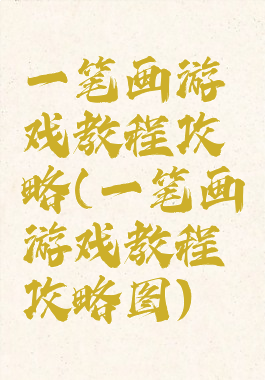 一笔画游
戏教程攻
略(一笔画
游戏教程
攻略图)